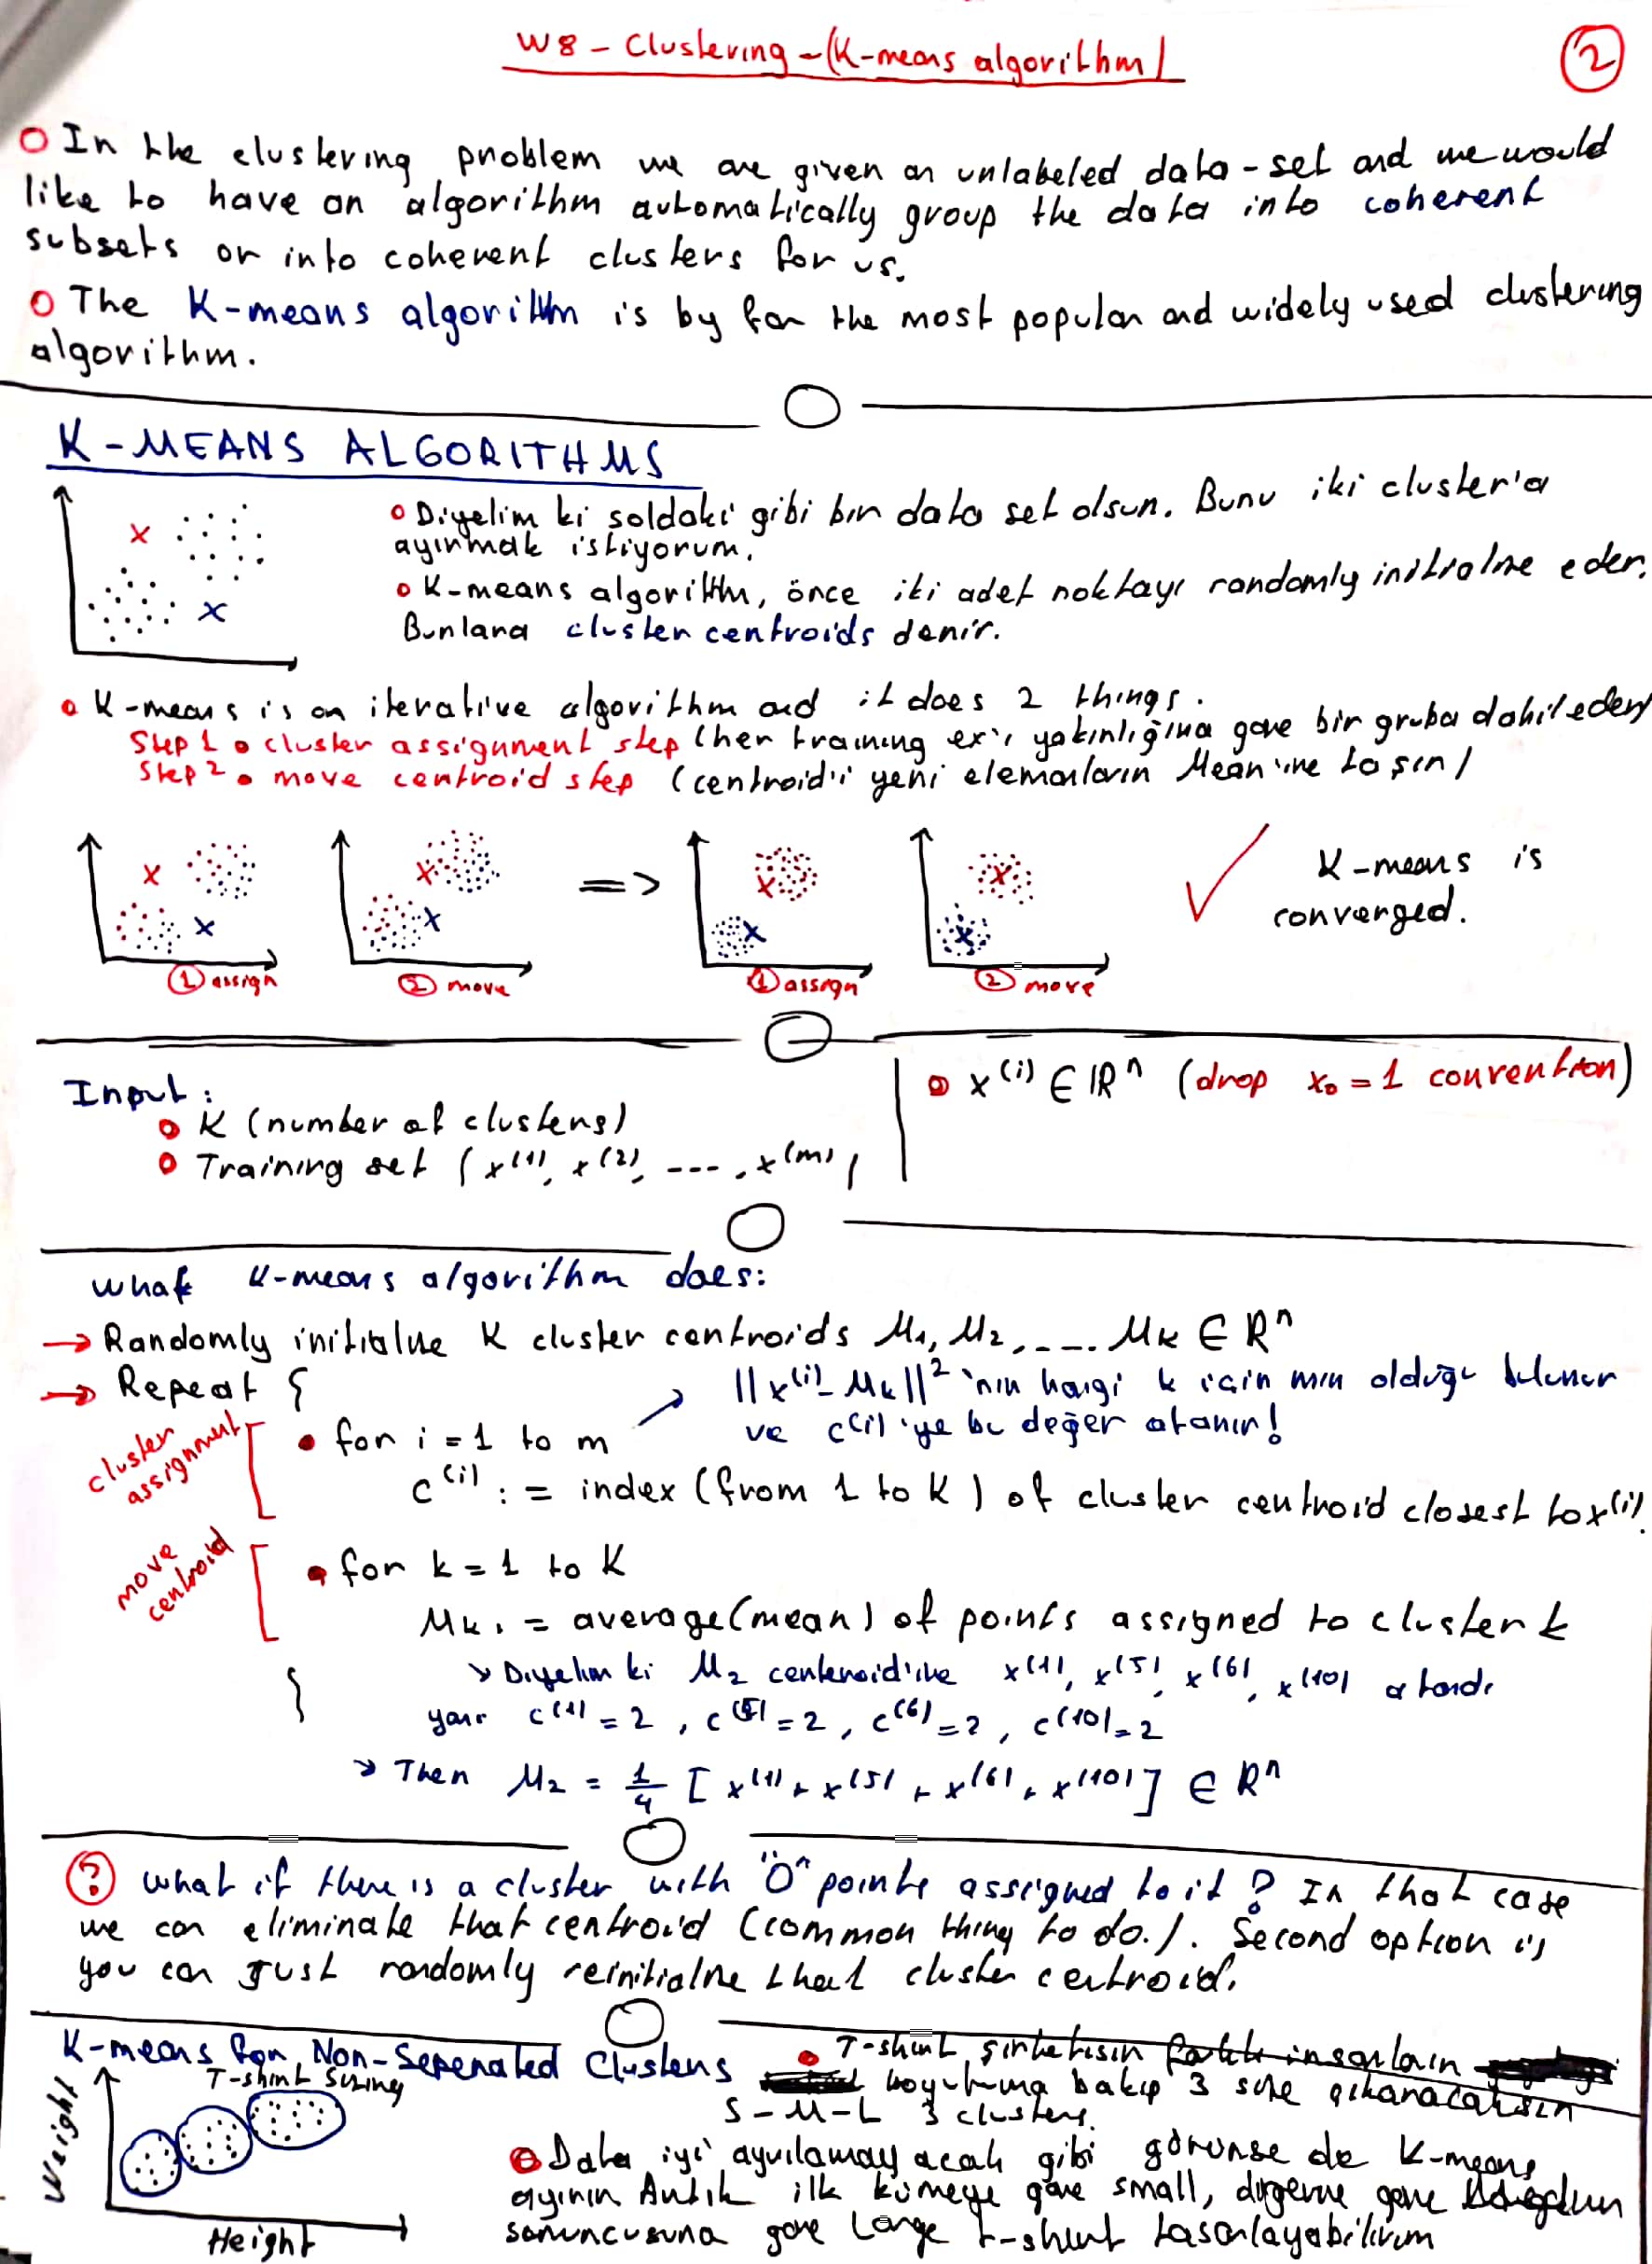 W8 - Clustering - (K-means algorithm)
2
In the clustering problem we are given an unlabeled data-set and we would
like to have an algorithm automatically group the data into coherent
subsets or into coherent clusters for us.
The K-means algorithm is by far the most popular and widely used clustering
algorithm.
K-MEANS ALGORITHMS
Diyelim ki soldaki gibi bir data set olsun. Bunu iki cluster'a
ayırmak istiyorum.
K-means algorithm, önce iki adet noktayı randomly initialize eder.
Bunlara cluster centroids denir.
K-means is an iterative algorithm and it does 2 things.
Step 1 • cluster assignment step (her training ex'i yakınlığına göre bir gruba dahil eder)
Step 2 • move centroid step (centroid'i yeni elemanların Mean'ine taşır)
X X X X X X X X
=>
K-means is
converged.
1 assign 2 move 1 assign 2 move
Input:
K (number of clusters)
Training set {x(1), x(2), ---, x(m)}
x(i) ∈ IR^n (drop x0 = 1 convention)
What K-means algorithm does:
→ Randomly initialize K cluster centroids M1, M2, ---. MK ∈ R^n
→ Repeat {
||x(i) - Mk||^2 'nin hangi k için min olduğu bulunur
ve c(i) 'ye bu değer atanır!
cluster
assignment
for i = 1 to m
c(i) := index (from 1 to K) of cluster centroid closest to x(i).
move
centroid
for k = 1 to K
Mk := average (mean) of points assigned to cluster k
→ Diyelim ki M2 x(1), x(5), x(6), x(10) atandı
yani c(1) = 2, c(5) = 2, c(6) = 2, c(10) = 2
}
→ Then M2 = 1/4 [x(1) + x(5) + x(6) + x(10)] ∈ R^n
? What if there is a cluster with "0" points assigned to it? In that case
we can eliminate that centroid (common thing to do.). Second option is
you can just randomly reinitialize that cluster centroid.
K-means for Non-Seperated Clusters
T-shirt Sizing
T-shirt şirketisin farklı insanların
boyutuna bakıp 3 size çıkaracaksın
S-M-L 3 clusters.
Weight
Height
Data iyi ayrılamayacak gibi görünse de K-means
ayırır. Artık ilk kümeye göre small, diğerine göre
sonuncusuna göre Large t-shirt tasarlayabilirim